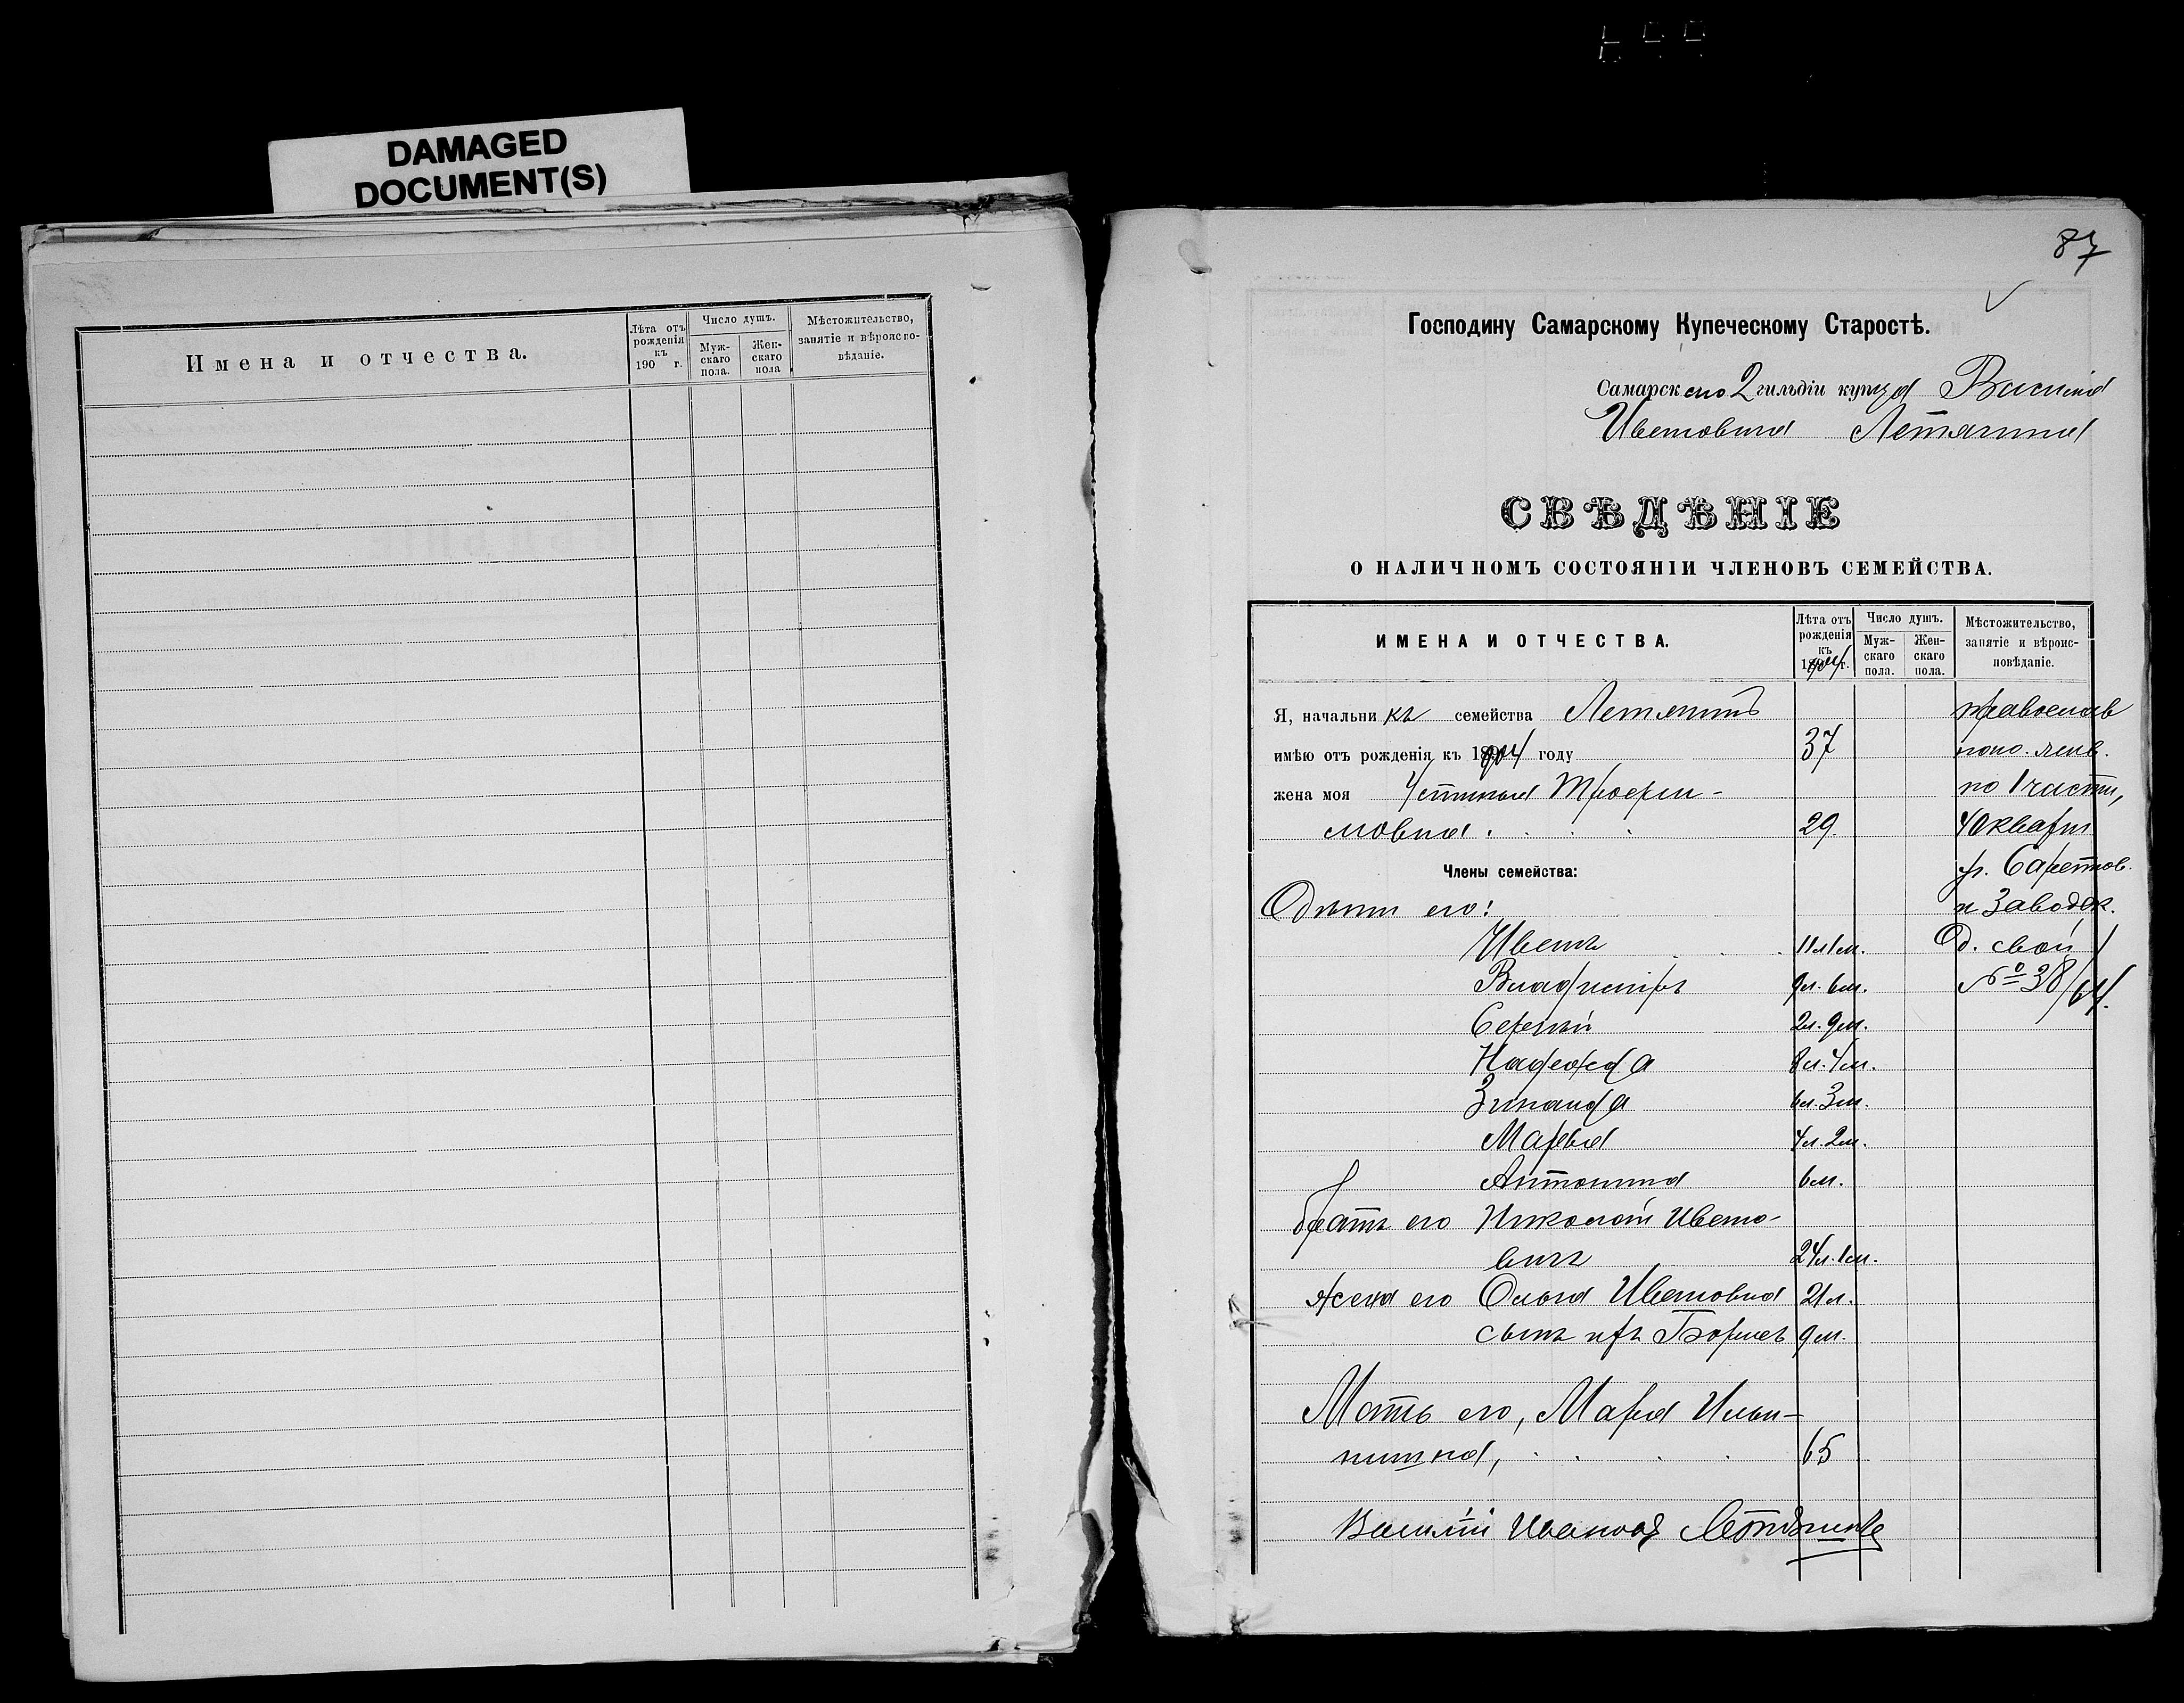 DAMAGED
DOCUMENT(S)
Имена и отчества.
Лѣта отъ рожденія къ 190 г.
Число душъ.
Мужскаго пола.
Женскаго пола
Мѣстожительство, занятіе и вѣроисповѣданіе.
87
Господину Самарскому Купеческому Старостѣ.
Самарскаго 2 гильдіи купца Василія
Ивановича Летягина
СВѢДѢНІЕ
О НАЛИЧНОМЪ СОСТОЯНІИ ЧЛЕНОВЪ СЕМЕЙСТВА.
ИМЕНА И ОТЧЕСТВА.
Лѣта отъ рожденія къ 1904 г.
Число душъ.
Мужскаго пола.
Женскаго пола.
Мѣстожительство, занятіе и вѣроисповѣданіе.
Я, начальникъ семейства Летягинъ православ
имѣю отъ рожденія къ 1904 году 37
жена моя Устинья Трофи- по 1 части,
мовна 29 40 кварт
Члены семейства: уг. Саратов.
Дѣти его: и Заводск.
Иванъ 11л 1м. д. свой
Владиміръ 9л. 6м. № 38/64.
Сергѣй 2л. 9м.
Надежда 8л. 4м.
Зинаида 6л. 3м.
Марья 4л. 2м.
Антонина 6м.
братъ его Николай Ивано-
вичъ 24л. 1м.
жена его Ольга Ивановна 21л.
сынъ ихъ Борисъ 9м.
Мать его, Марья Ильи-
нишна, 65
Василій Ивановъ Летягинъ